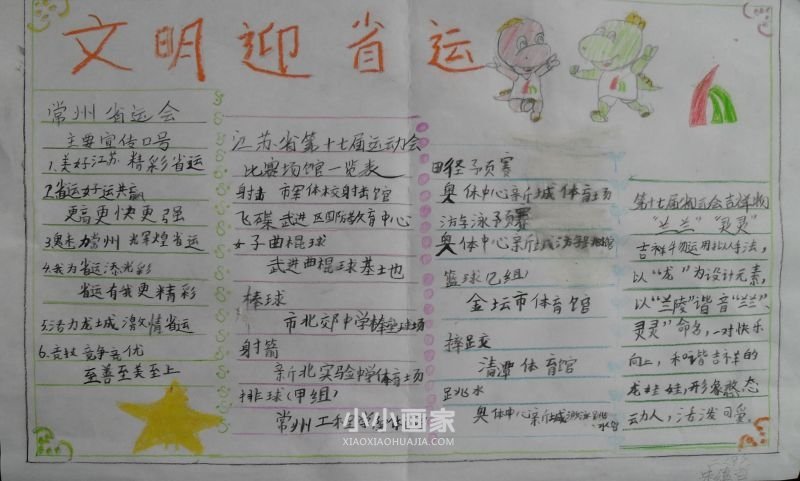 文明迎省运
常州省运会
主要宣传口号
1.美好江苏 精彩省运
2.省运好运共赢
更高更快更强
3.魅力常州 光辉煌省运
4.我为省运添光彩
省运有我更精彩
5.活力龙城 激情省运
6.竞技竞争竞优
至善至美至上
江苏省第十七届运动会
比赛场馆一览表
射击 市军体校射击馆
飞碟 武进区国防教育中心
女子曲棍球
武进曲棍球基地
棒球
市北郊中学棒垒球场
射箭
新北实验中学体育场
排球(甲组)
常州工程学
田径予预赛
奥体中心新城体育场
游泳予赛
奥体中心新城游泳
篮球(乙组)
金坛市体育馆
摔跤
清潭体育馆
跳水
奥体中心新城游泳跳水馆
第十七届省运会吉祥物
“兰兰”“灵灵”
吉祥物运用拟人手法,
以“龙”为设计元素,
以“兰陵”谐音“兰兰、
灵灵”命名,一对快乐
向上,和谐吉祥的
龙娃娃,形象憨态
动人,活泼可爱。
小小画家
XIAOXIAOHUAJIA.COM